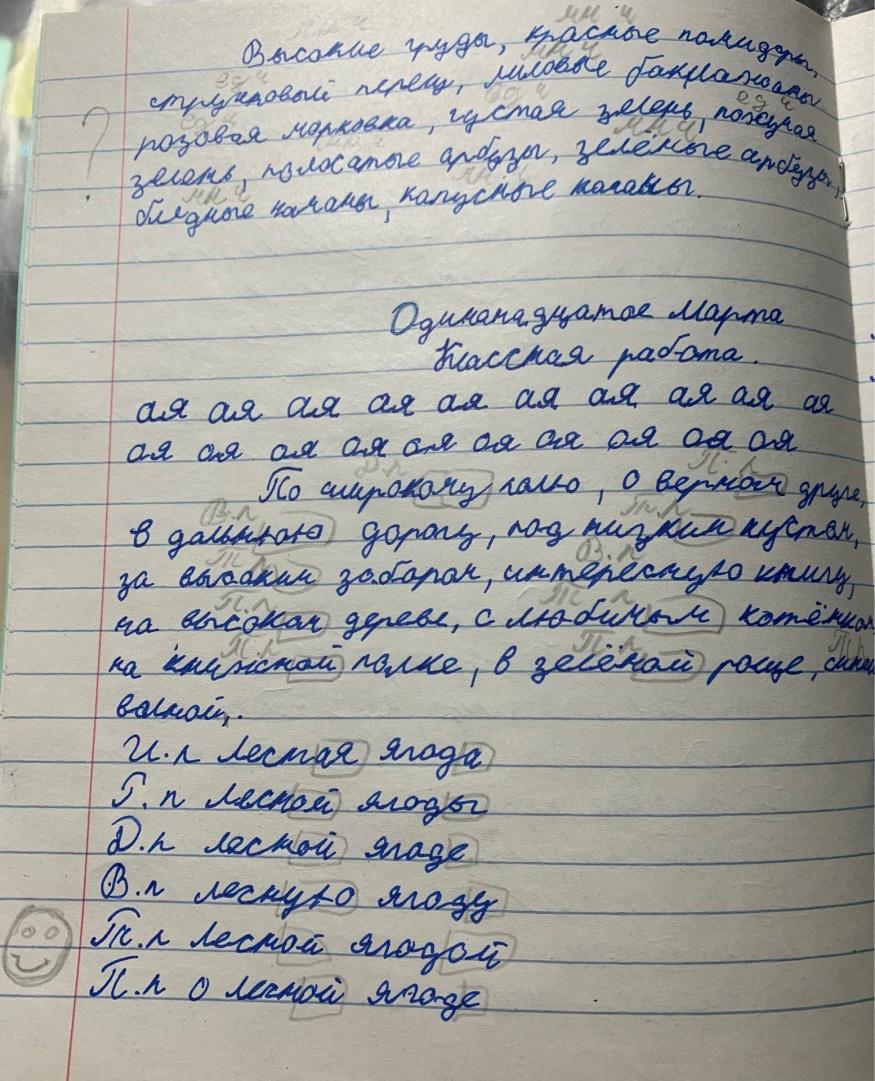 мн ч
Высокие груды, красные помидоры,
ед ч мн ч
стручковый перец, лиловые баклажаны
ед ч ед ч ед ч
розовая морковка, густая зелень, пахучая
мн ч мн ч
? зелень, полосатые арбузы, зелёные арбузы,
мн ч мн ч
бледные качаны, капусные качаны.
Одинанадцатое Марта
Классная работа.
ая ая ая ая ая ая ая ая ая ая
ая ая ая ая ая ая ая ая ая ая
Д.п П.п
По широкому полю, о верном друге,
В.п Т.п
в дальнюю дорогу, под низким кустом,
Т.п В.п
за высоким забором, интересную книгу,
П.п Т.п
на высоком дереве, с любимым котёнком
П.п П.п Т.п
на книжной полке, в зелёной роще, синей
волной,.
И.п лесная ягода
Г.п лесной ягоды
Д.п лесной ягоде
В.п лесную ягоду
Т.п лесной ягодой
П.п о лесной ягоде